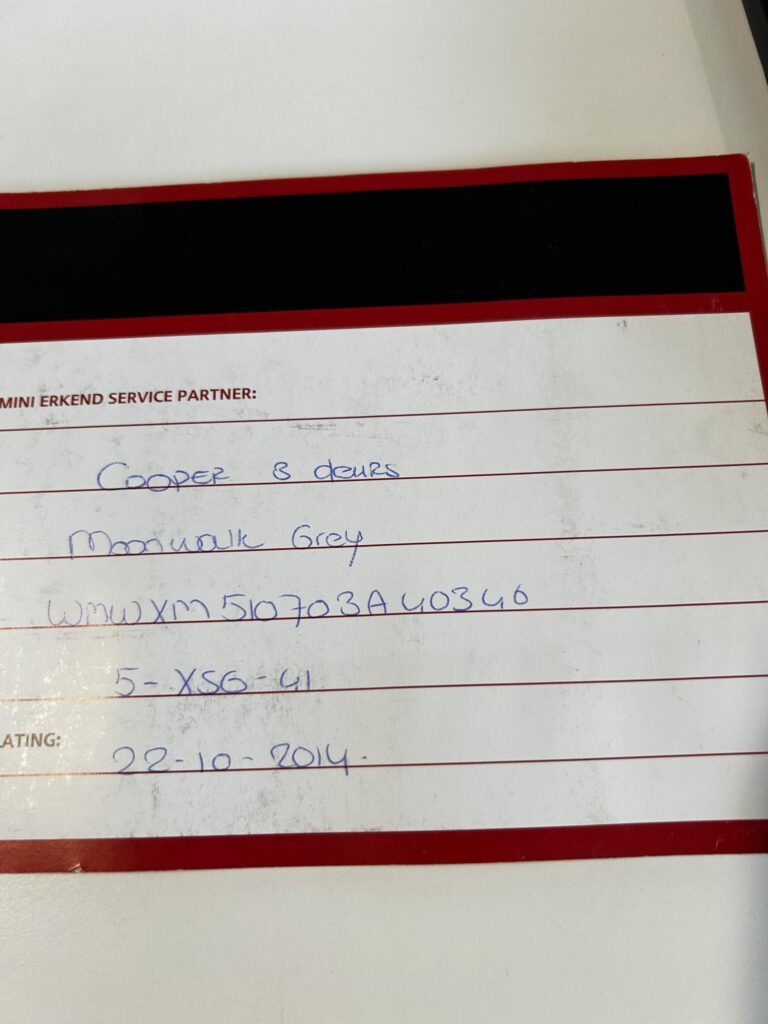 MINI ERKEND SERVICE PARTNER:
Cooper 3 deurs
Moonwalk Grey
WMWXM510703A40346
5-XSG-41
LATING:
22-10-2014.